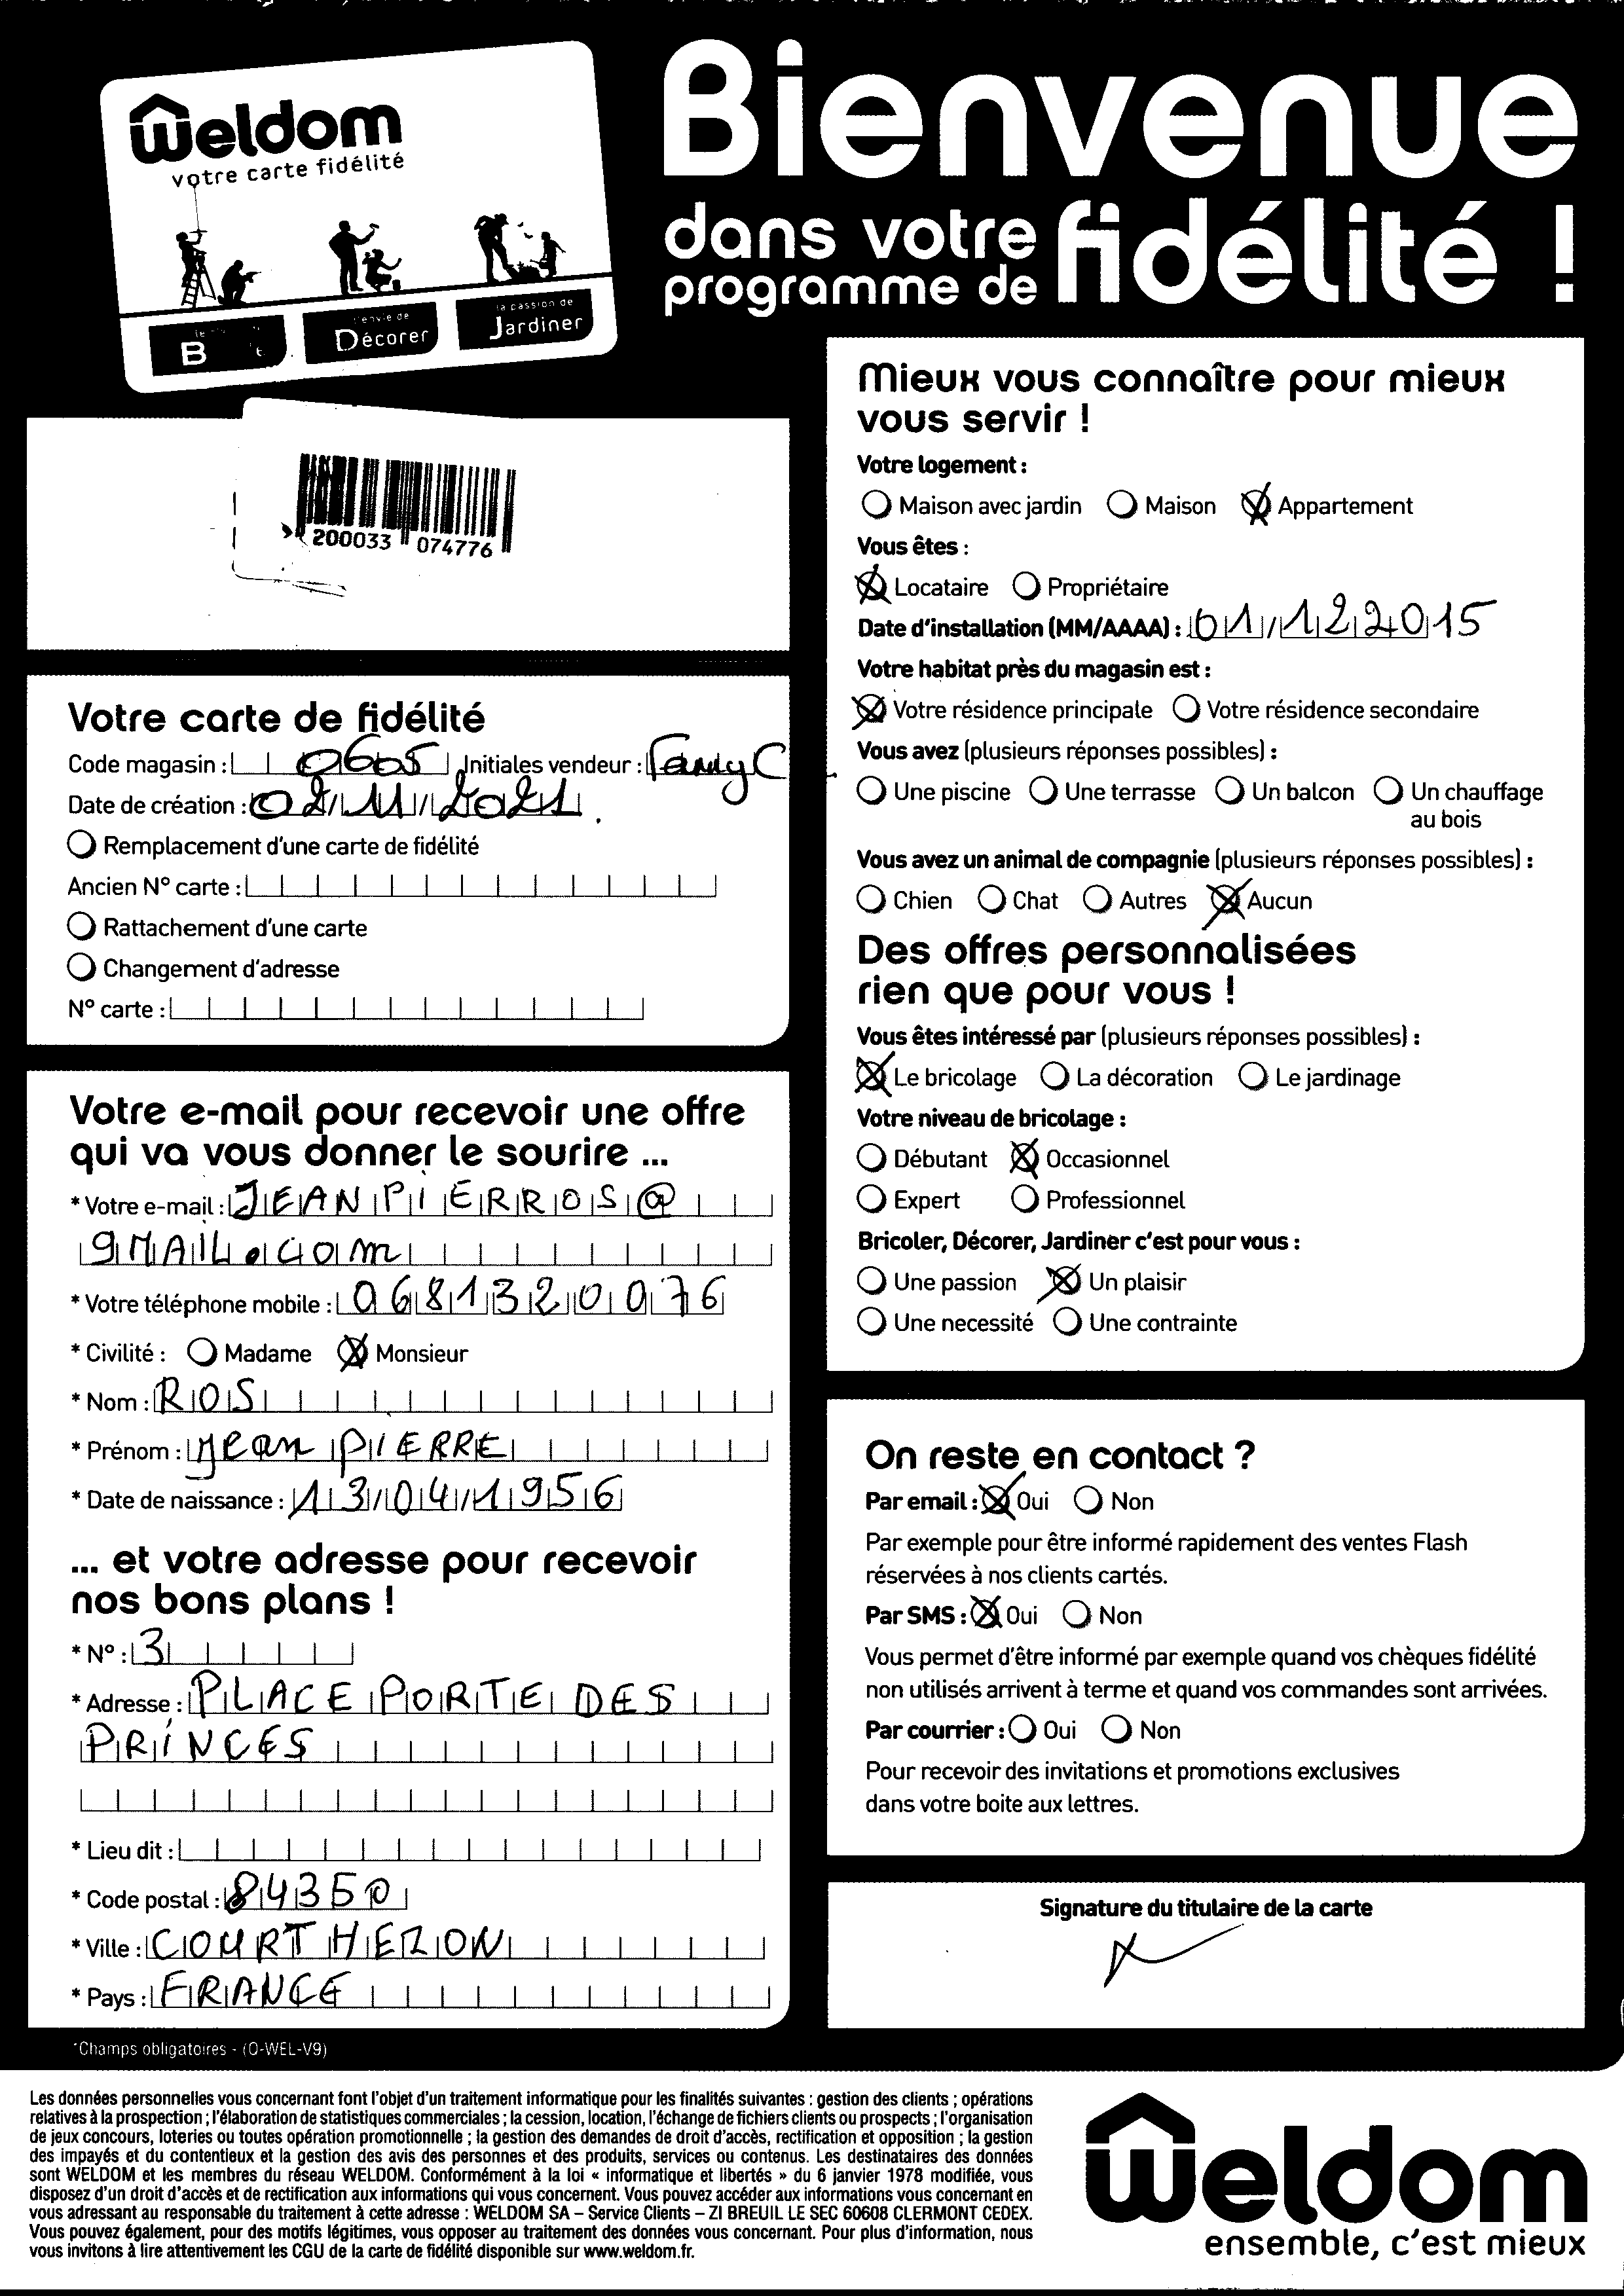 Weldom
votre carte fidélité
B
l'envie de
Décorer
la passion de
Jardiner
Bienvenue
dans votre
programme de
fidélité !
200033 074776
Votre carte de fidélité
Code magasin : 0605 Initiales vendeur : Fanny C
Date de création : 02/11/2021.
Remplacement d'une carte de fidélité
Ancien N° carte :
Rattachement d'une carte
Changement d'adresse
N° carte :
Votre e-mail pour recevoir une offre
qui va vous donner le sourire ...
* Votre e-mail : JEANPIERROS@
gMAIL.COm
* Votre téléphone mobile : 0681320076
* Civilité : Madame Monsieur
* Nom : ROS
* Prénom : Jean PIERRE
* Date de naissance : 13/04/1956
... et votre adresse pour recevoir
nos bons plans !
* N° : 3
* Adresse : PLACE PORTE DES
PRINCES
* Lieu dit :
* Code postal : 84350
* Ville : COURTHEZON
* Pays : FRANCE
*Champs obligatoires - (O-WEL-V9)
Mieux vous connaître pour mieux
vous servir !
Votre logement :
Maison avec jardin Maison Appartement
Vous êtes :
Locataire Propriétaire
Date d'installation (MM/AAAA) : 01/122015
Votre habitat près du magasin est :
Votre résidence principale Votre résidence secondaire
Vous avez (plusieurs réponses possibles) :
Une piscine Une terrasse Un balcon Un chauffage
au bois
Vous avez un animal de compagnie (plusieurs réponses possibles) :
Chien Chat Autres Aucun
Des offres personnalisées
rien que pour vous !
Vous êtes intéressé par (plusieurs réponses possibles) :
Le bricolage La décoration Le jardinage
Votre niveau de bricolage :
Débutant Occasionnel
Expert Professionnel
Bricoler, Décorer, Jardiner c'est pour vous :
Une passion Un plaisir
Une necessité Une contrainte
On reste en contact ?
Par email : Oui Non
Par exemple pour être informé rapidement des ventes Flash
réservées à nos clients cartés.
Par SMS : Oui Non
Vous permet d'être informé par exemple quand vos chèques fidélité
non utilisés arrivent à terme et quand vos commandes sont arrivées.
Par courrier : Oui Non
Pour recevoir des invitations et promotions exclusives
dans votre boite aux lettres.
Signature du titulaire de la carte
Les données personnelles vous concernant font l'objet d'un traitement informatique pour les finalités suivantes : gestion des clients ; opérations
relatives à la prospection ; l'élaboration de statistiques commerciales ; la cession, location, l'échange de fichiers clients ou prospects ; l'organisation
de jeux concours, loteries ou toutes opération promotionnelle ; la gestion des demandes de droit d'accès, rectification et opposition ; la gestion
des impayés et du contentieux et la gestion des avis des personnes et des produits, services ou contenus. Les destinataires des données
sont WELDOM et les membres du réseau WELDOM. Conformément à la loi « informatique et libertés » du 6 janvier 1978 modifiée, vous
disposez d'un droit d'accès et de rectification aux informations qui vous concernent. Vous pouvez accéder aux informations vous concernant en
vous adressant au responsable du traitement à cette adresse : WELDOM SA – Service Clients – ZI BREUIL LE SEC 60608 CLERMONT CEDEX.
Vous pouvez également, pour des motifs légitimes, vous opposer au traitement des données vous concernant. Pour plus d'information, nous
vous invitons à lire attentivement les CGU de la carte de fidélité disponible sur www.weldom.fr.
Weldom
ensemble, c'est mieux